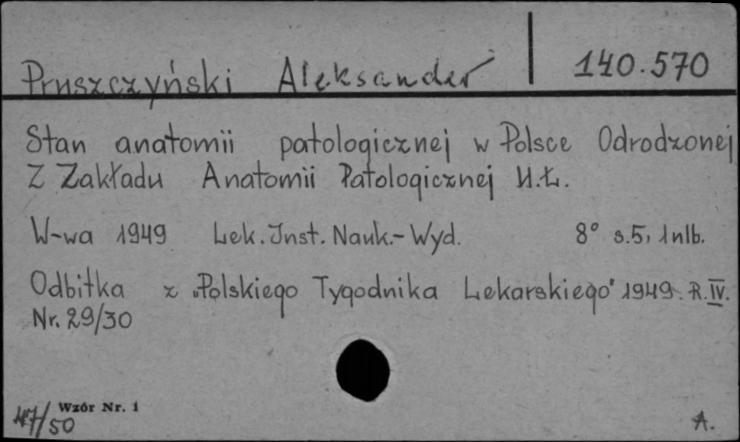 Pruszczyński Aleksander 140.570
Stan anatomii patologicznej w Polsce Odrodzonej
Z Zakładu Anatomii Patologicznej U.Ł.
W-wa 1949 Lek. Inst. Nauk.-Wyd. 8° s.5, 1nlb.
Odbitka z „Polskiego Tygodnika Lekarskiego" 1949. R.IV.
Nr. 29/30
Wzór Nr. 1
/50
A.